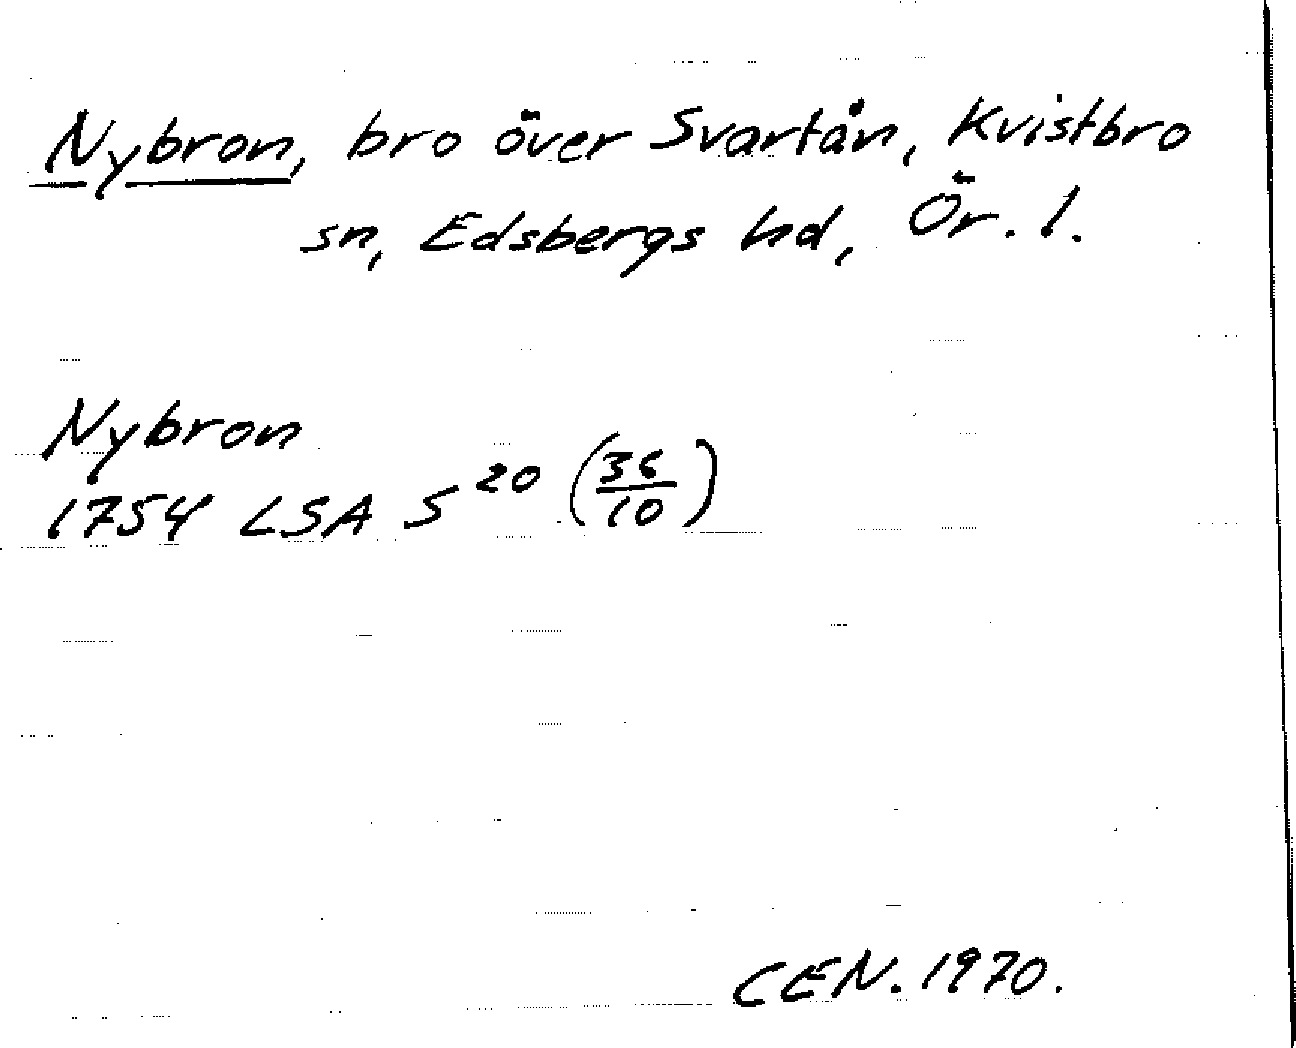 Nybron, bro över Svartån, Kvistbro
sn, Edsbergs hd, Ör. l.
Nybron
1754 LSA S 20 (36/10)
CEN. 1970.